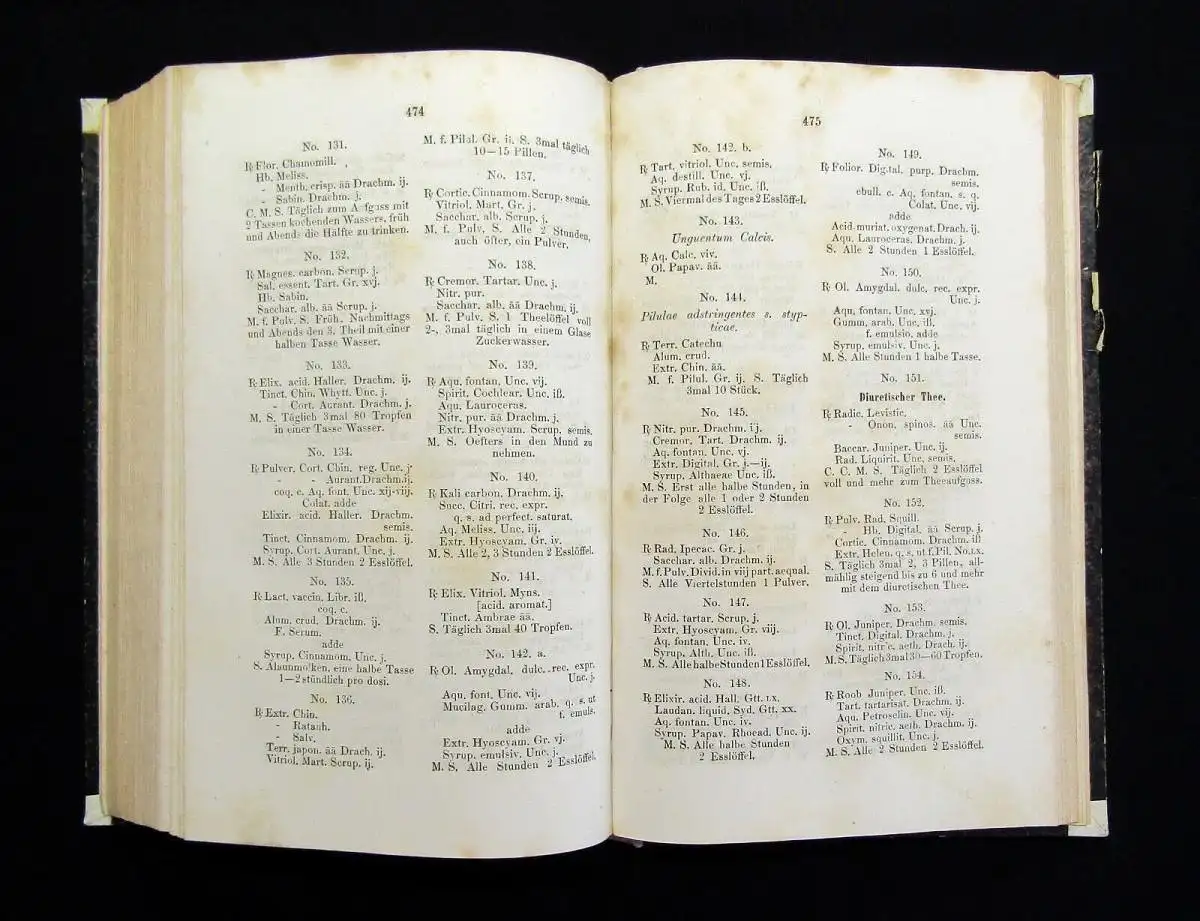 474
No. 131.
℞ Flor. Chamomill.
Hb. Meliss.
- Menth. crisp. āā Drachm. ij.
- Sabin. Drachm. j.
C. M. S. Täglich zum Aufguss mit
2 Tassen kochenden Wassers, früh
und Abends die Hälfte zu trinken.
No. 132.
℞ Magnes. carbon. Scrup. j.
Sal. essent. Tart. Gr. xvj.
Hb. Sabin.
Sacchar. alb. āā Scrup. j.
M. f. Pulv. S. Früh, Nachmittags
und Abends den 3. Theil mit einer
halben Tasse Wasser.
No. 133.
℞ Elix. acid. Haller. Drachm. ij.
Tinct. Chin. Whytt. Unc. j.
- Cort. Aurant. Drachm. j.
M. S. Täglich 3mal 80 Tropfen
in einer Tasse Wasser.
No. 134.
℞ Pulver. Cort. Chin. reg. Unc. j.
- - Aurant. Drachm. ij.
coq. c. Aq. font. Unc. xij-viij.
Colat. adde
Elixir. acid. Haller. Drachm.
semis.
Tinct. Cinnamom. Drachm. ij.
Syrup. Cort. Aurant. Unc. j.
M. S. Alle 3 Stunden 2 Esslöffel.
No. 135.
℞ Lact. vaccin. Libr. iß.
coq. c.
Alum. crud. Drachm. ij.
F. Serum.
adde
Syrup. Cinnamom. Unc. j.
S. Alaunmolken, eine halbe Tasse
1—2 stündlich pro dosi.
No. 136.
℞ Extr. Chin.
- Ratanh.
- Salv.
Terr. japon. āā Drach. ij.
Vitriol. Mart. Scrup. ij.
M. f. Pilul. Gr. ij. S. 3mal täglich
10—15 Pillen.
No. 137.
℞ Cortic. Cinnamom. Scrup. semis.
Vitriol. Mart. Gr. j.
Sacchar. alb. Scrup. j.
M. f. Pulv. S. Alle 2 Stunden,
auch öfter, ein Pulver.
No. 138.
℞ Cremor. Tartar. Unc. j.
Nitr. pur.
Sacchar. alb. āā Drachm. ij.
M. f. Pulv. S. 1 Theelöffel voll
2-, 3mal täglich in einem Glase
Zuckerwasser.
No. 139.
℞ Aqu. fontan. Unc. vij.
Spirit. Cochlear. Unc. iß.
Aqu. Lauroceras.
Nitr. pur. āā Drachm. j.
Extr. Hyoscyam. Scrup. semis.
M. S. Oefters in den Mund zu
nehmen.
No. 140.
℞ Kali carbon. Drachm. ij.
Succ. Citri. rec. expr.
q. s. ad perfect. saturat.
Aq. Meliss. Unc. iij.
Extr. Hyoscyam. Gr. iv.
M. S. Alle 2, 3 Stunden 2 Esslöffel.
No. 141.
℞ Elix. Vitriol. Myns.
[acid. aromat.]
Tinct. Ambrae āā.
S. Täglich 3mal 40 Tropfen.
No. 142. a.
℞ Ol. Amygdal. dulc. rec. expr.
Unc. j.
Aqu. font. Unc. vij.
Mucilag. Gumm. arab. q. s. ut
f. emuls.
adde
Extr. Hyoscyam. Gr. vj.
Syrup. emulsiv. Unc. j.
M. S. Alle Stunden 2 Esslöffel.
475
No. 142. b.
℞ Tart. vitriol. Unc. semis.
Aq. destill. Unc. vj.
Syrup. Rub. id. Unc. iß.
M. S. Viermal des Tages 2 Esslöffel.
No. 143.
Unguentum Calcis.
℞ Aq. Calc. viv.
Ol. Papav. āā.
M.
No. 144.
Pilulae adstringentes s. styp-
ticae.
℞ Terr. Catechu
Alum. crud.
Extr. Chin. āā.
M. f. Pilul. Gr. ij. S. Täglich
3mal 10 Stück.
No. 145.
℞ Nitr. pur. Drachm. ij.
Cremor. Tart. Drachm. ij.
Aq. fontan. Unc. vj.
Extr. Digital. Gr. j.—ij.
Syrup. Althaeae Unc. iß.
M. S. Erst alle halbe Stunden, in
der Folge alle 1 oder 2 Stunden
2 Esslöffel.
No. 146.
℞ Rad. Ipecac. Gr. j.
Sacchar. alb. Drachm. ij.
M. f. Pulv. Divid. in viij part. aequal.
S. Alle Viertelstunden 1 Pulver.
No. 147.
℞ Acid. tartar. Scrup. j.
Extr. Hyoscyam. Gr. viij.
Aq. fontan. Unc. iv.
Syrup. Alth. Unc. iß.
M. S. Alle halbe Stunden 1 Esslöffel.
No. 148.
℞ Elixir. acid. Hall. Gtt. LX.
Laudan. liquid. Syd. Gtt. XX.
Aq. fontan. Unc. iv.
Syrup. Papav. Rhoead. Unc. ij.
M. S. Alle halbe Stunden
2 Esslöffel.
No. 149.
℞ Folior. Digital. purp. Drachm.
semis.
ebull. c. Aq. fontan. s. q.
Colat. Unc. vij.
adde
Acid. muriat. oxygenat. Drach. ij.
Aqu. Lauroceras. Drachm. j.
S. Alle 2 Stunden 1 Esslöffel.
No. 150.
℞ Ol. Amygdal. dulc. rec. expr.
Unc. j.
Aqu. fontan. Unc. xvj.
Gumm. arab. Unc. iß.
f. emulsio. adde
Syrup. emulsiv. Unc. j.
M. S. Alle Stunden 1 halbe Tasse.
No. 151.
Diuretischer Thee.
℞ Radic. Levistic.
- Onon. spinos. āā Unc.
semis.
Baccar. Juniper. Unc. ij.
Rad. Liquirit. Unc. semis.
C. C. M. S. Täglich 2 Esslöffel
voll und mehr zum Theeaufguss.
No. 152.
℞ Pulv. Rad. Squill.
- Hb. Digital. āā Scrup. j.
Cortic. Cinnamom. Drachm. iß
Extr. Helen. q. s. ut f. Pil. No. LX.
S. Täglich 3mal 2, 3 Pillen, all-
mählig steigend bis zu 6 und mehr
mit dem diuretischen Thee.
No. 153.
℞ Ol. Juniper. Drachm. semis.
Tinct. Digital. Drachm. j.
Spirit. nitric. aeth. Drach. ij.
M. S. Täglich 3mal 30—60 Tropfen.
No. 154.
℞ Roob Juniper. Unc. iß.
Tart. tartarisat. Drachm. ij.
Aqu. Petroselin. Unc. vij.
Spirit. nitric. aeth. Drachm. ij.
Oxym. squillit. Unc. j.
M. S. Alle 2 Stunden 2 Esslöffel.